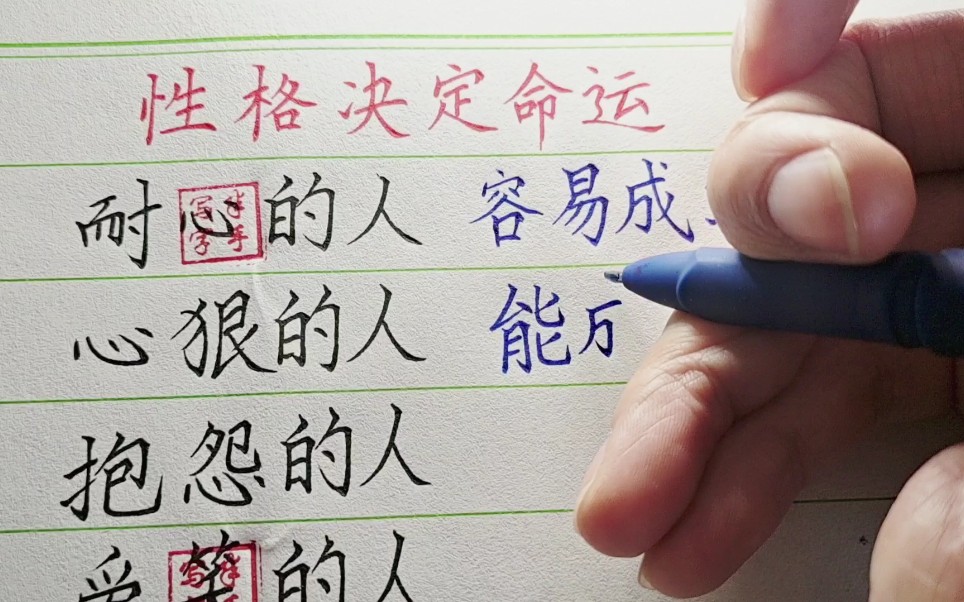 性格决定命运
耐心的人 容易成
心狠的人 能万
抱怨的人
爱笑的人